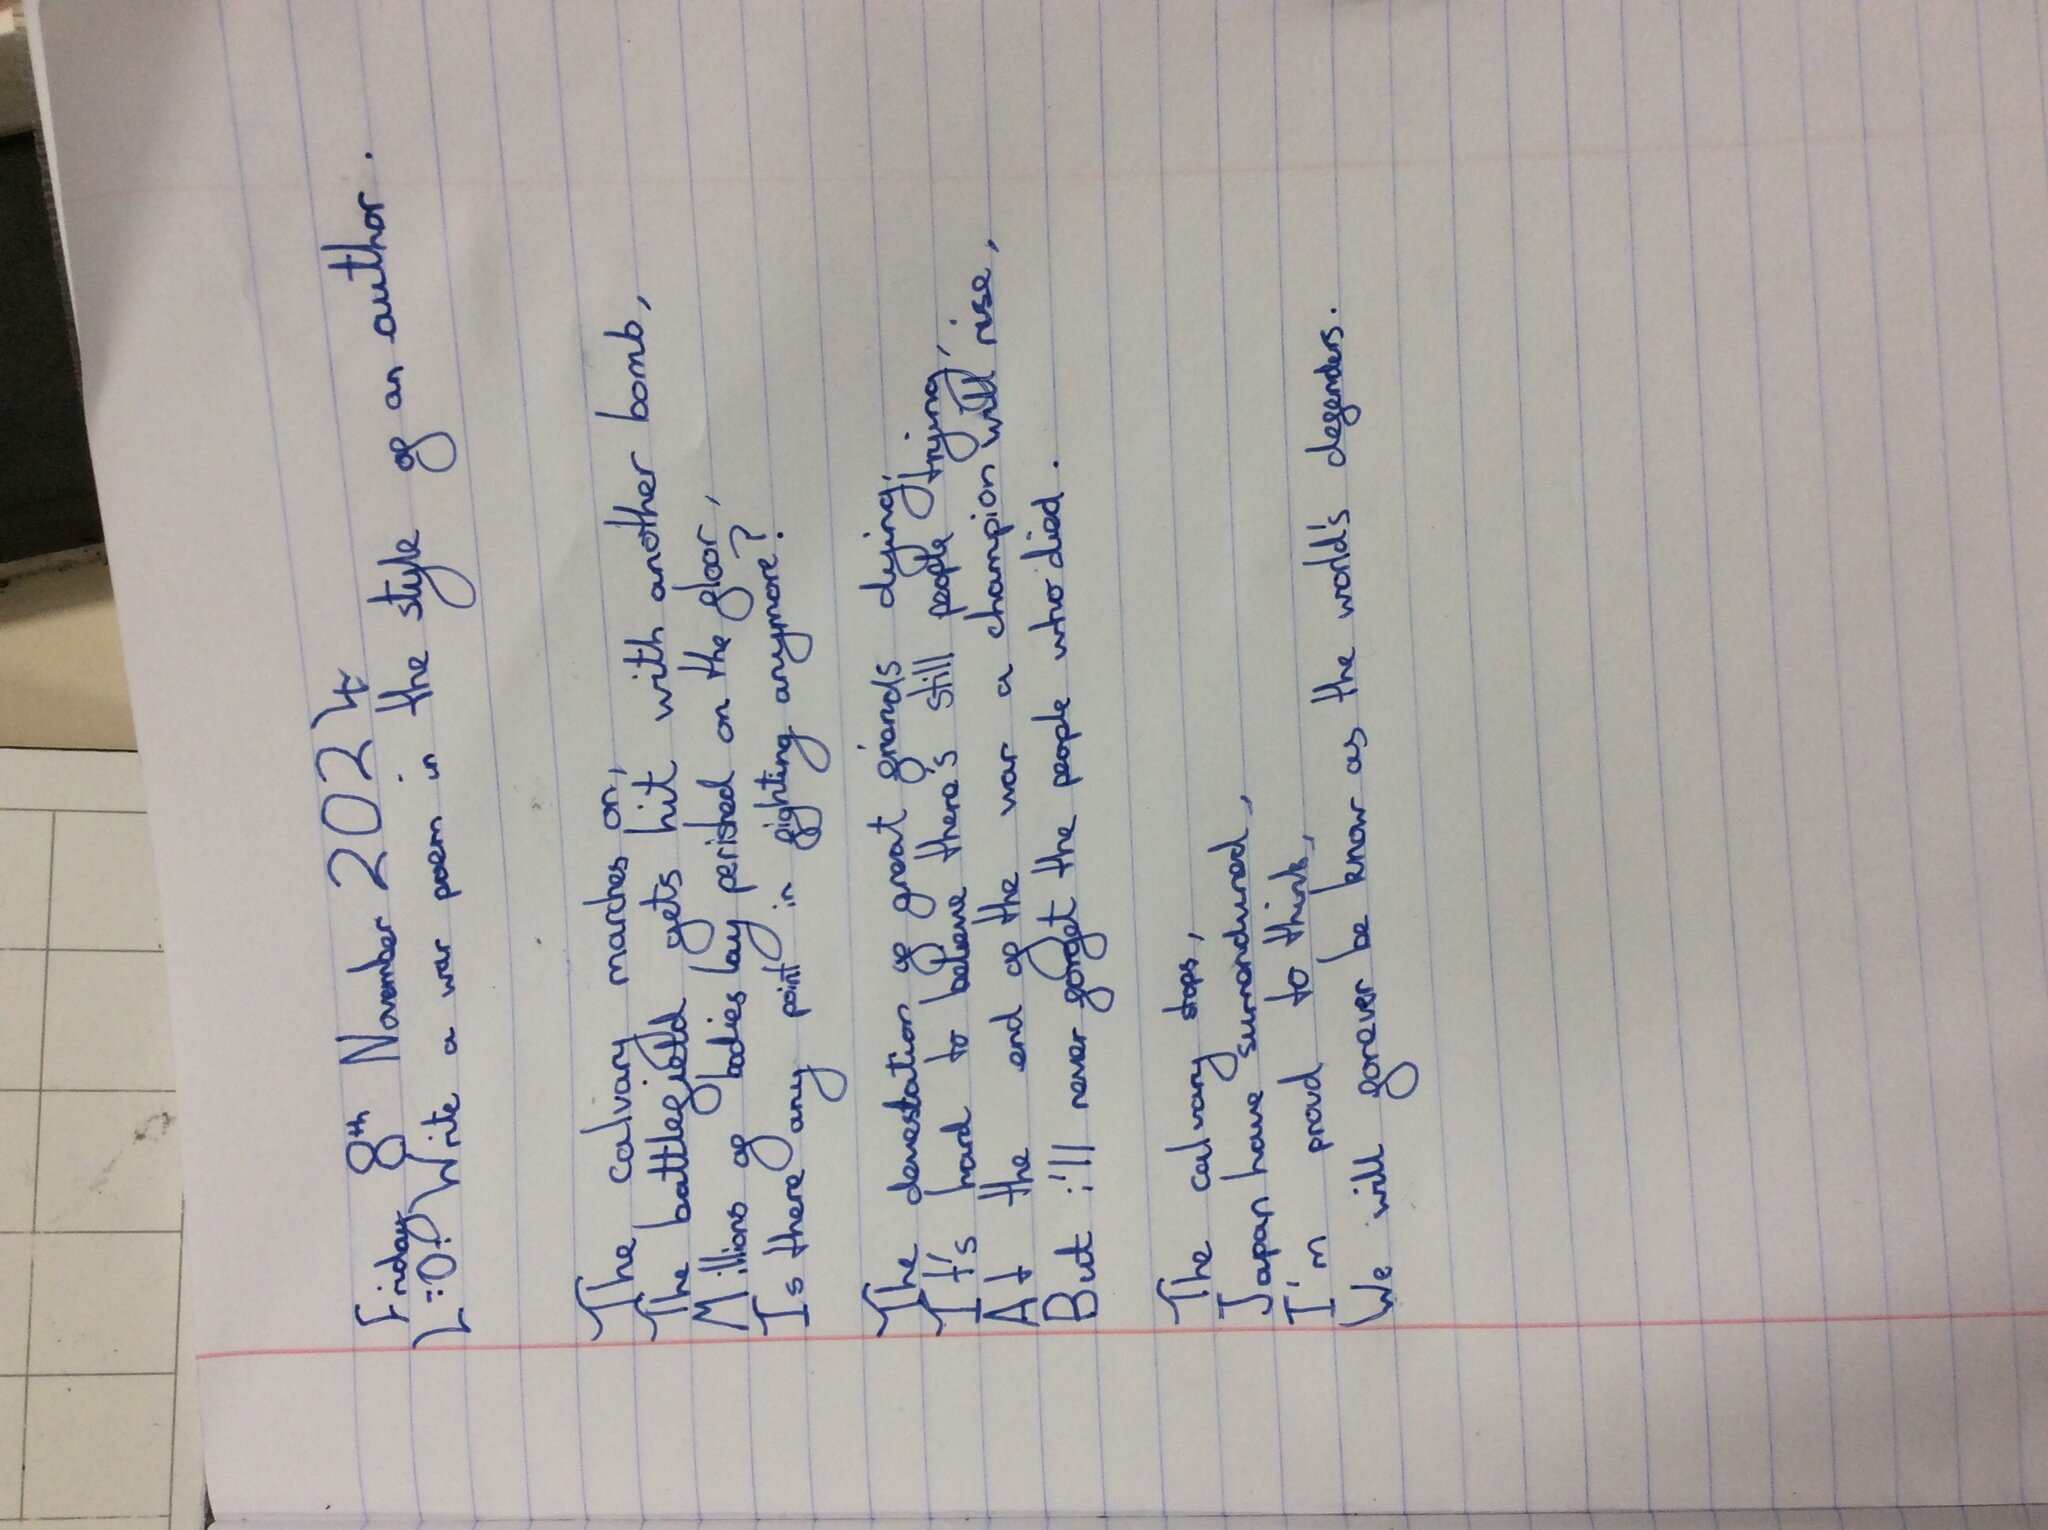 Friday 8th November 2024
L:O: Write a war poem in the style of an author.
The calvary marches on,
The battlefield gets hit with another bomb,
Millions of bodies lay perished on the floor,
Is there any point in fighting anymore?
The devestation of great friends dying,
It's hard to beleive there's still people trying,
At the end of the war a champion will rise,
But i'll never forget the people who died.
The calvary stops,
Japan have surrendured,
I'm proud to think,
We will forever be know as the world's defenders.